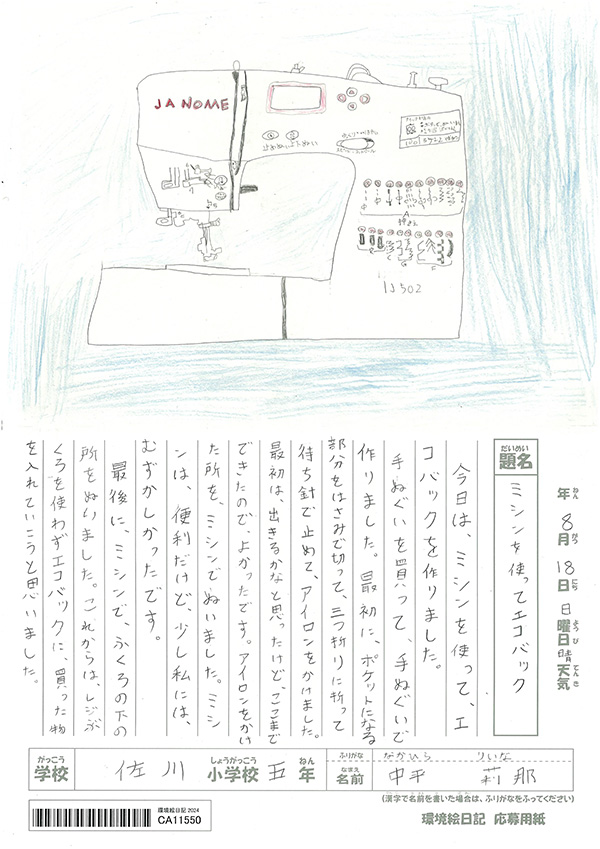 JANOME
止めぬい
IJ502
年 8月 18日 日曜日 晴天気
ねん がつ にち ようび てんき
だいめい
題名 ミシンを使ってエコバック
今日は、ミシンを使って、エ
コバックを作りました。
手ぬぐいを買って、手ぬぐいで
作りました。最初に、ポケットになる
部分をはさみで切って、三つ折りに折って
待ち針で止めて、アイロンをかけました。
最初は、出きるかなと思ったけど、ここまで
できたので、よかったです。アイロンをかけ
た所を、ミシンでぬいました。ミシ
ンは、便利だけど、少し私には、
むずかしかったです。
最後に、ミシンで、ふくろの下の
所をぬりました。これからは、レジぶ
くろを使わずエコバックに、買った物
を入れていこうと思いました。
がっこう しょうがっこう ねん
学校 佐川 小学校 五 年
ふりがな なかひら りいな
なまえ
名前 中平 莉那
(漢字で名前を書いた場合は、ふりがなをふってください)
環境絵日記 2024
CA11550
環境絵日記 応募用紙